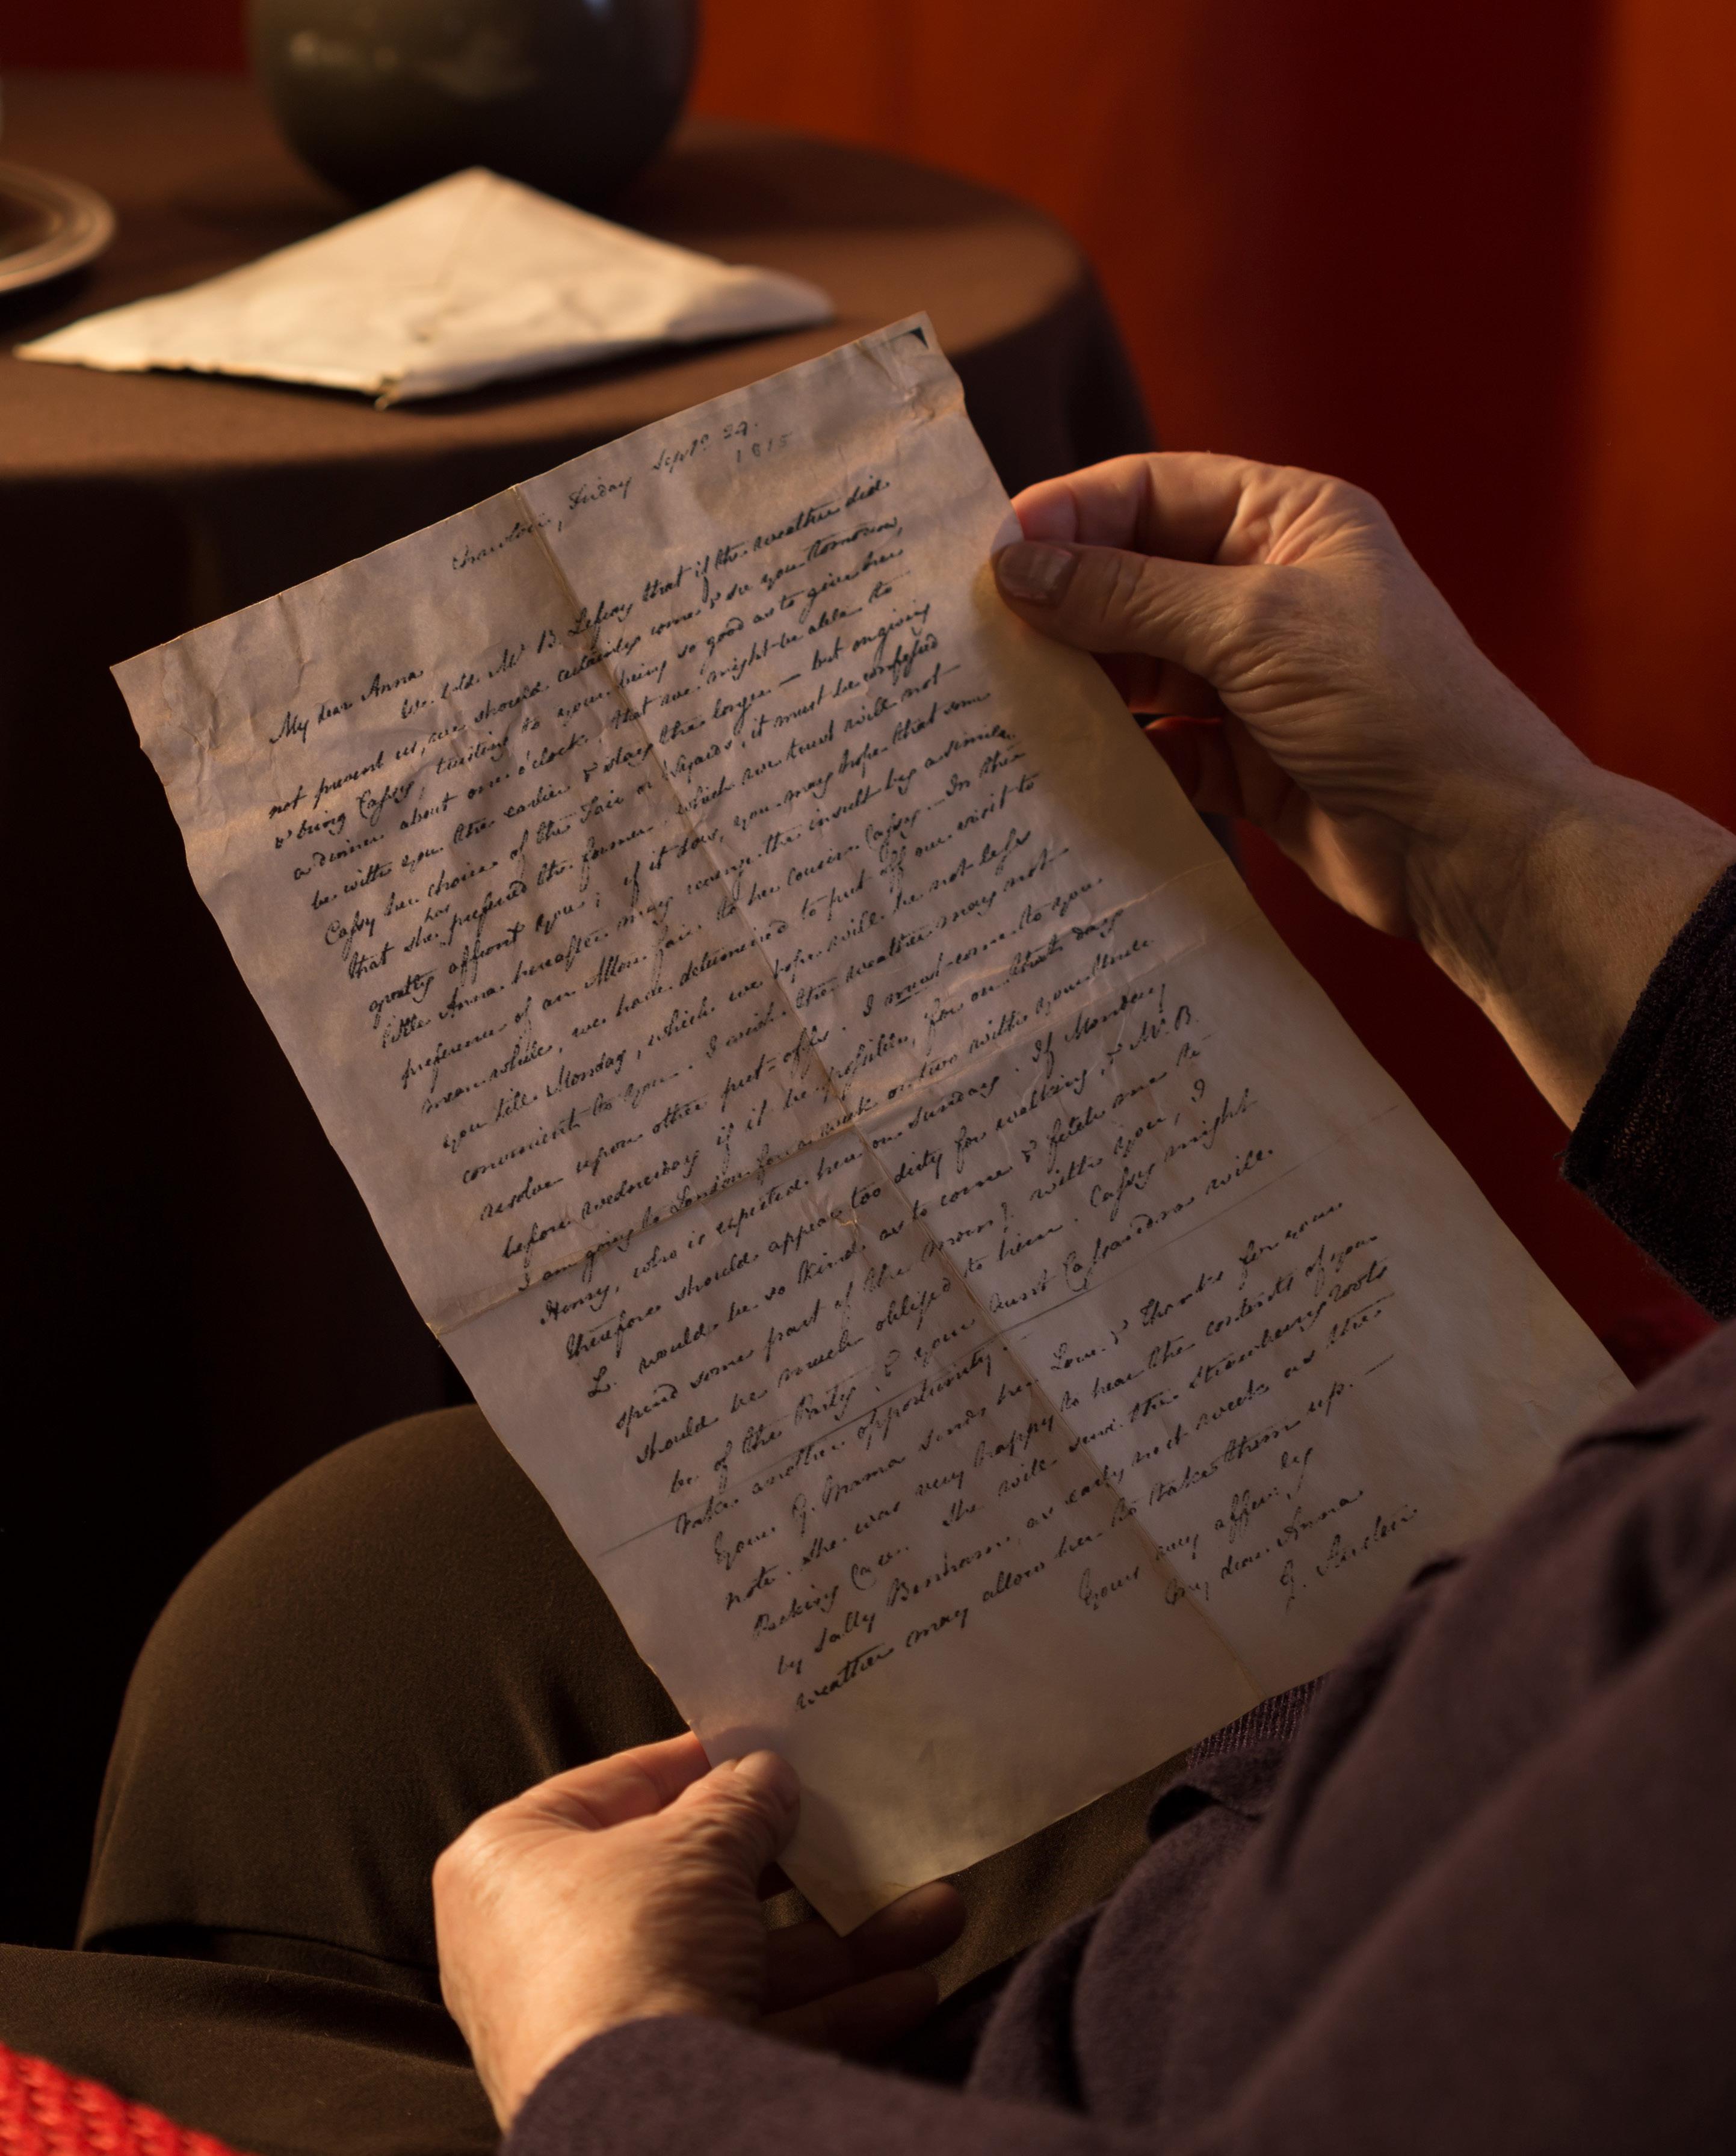 Chawton, Friday Sept: 29.
1815
My dear Anna
We told Mr. B. Lefroy that if the weather did
not prevent us, we should certainly come & see you tomorrow,
& bring Cassy, trusting to your being so good as to give her
a dinner about one o'clock, that we might be able to
be with you the earlier & stay the longer — but on giving
Cassy her choice of the Fair or Wyards, it must be confessed
that she has preferred the former, which we trust will not
greatly affront you; if it does, you may hope that some
little Anna hereafter may revenge the insult by a similar
preference of an Alton Fair to her Cousin Cassy. — In the
mean while, we have determined to put off our visit to
you till Monday, which we hope will be not less
convenient to You. I wish the weather may not
resolve upon other put-offs. I must come to you
before Wednesday if it be possible, for on that day
I am going to London for a week or two with your Uncle
Henry, who is expected here on Sunday. If Monday
therefore should appear too dirty for walking, & Mr. B.
L. would be so kind as to come & fetch me to
spend some part of the morng. with you, I
should be much obliged to him. Cassy might
be of the Party, & your Aunt Cassandra will
take another opportunity.
Your G. Mama sends her Love & Thanks for your
note. She was very happy to hear the contents of your
Packing Case. She will send the strawberry roots
by Sally Benham, as early next week as the
weather may allow her to take them up. —
Yours very affec:ly
My dear Anna
J. Austen